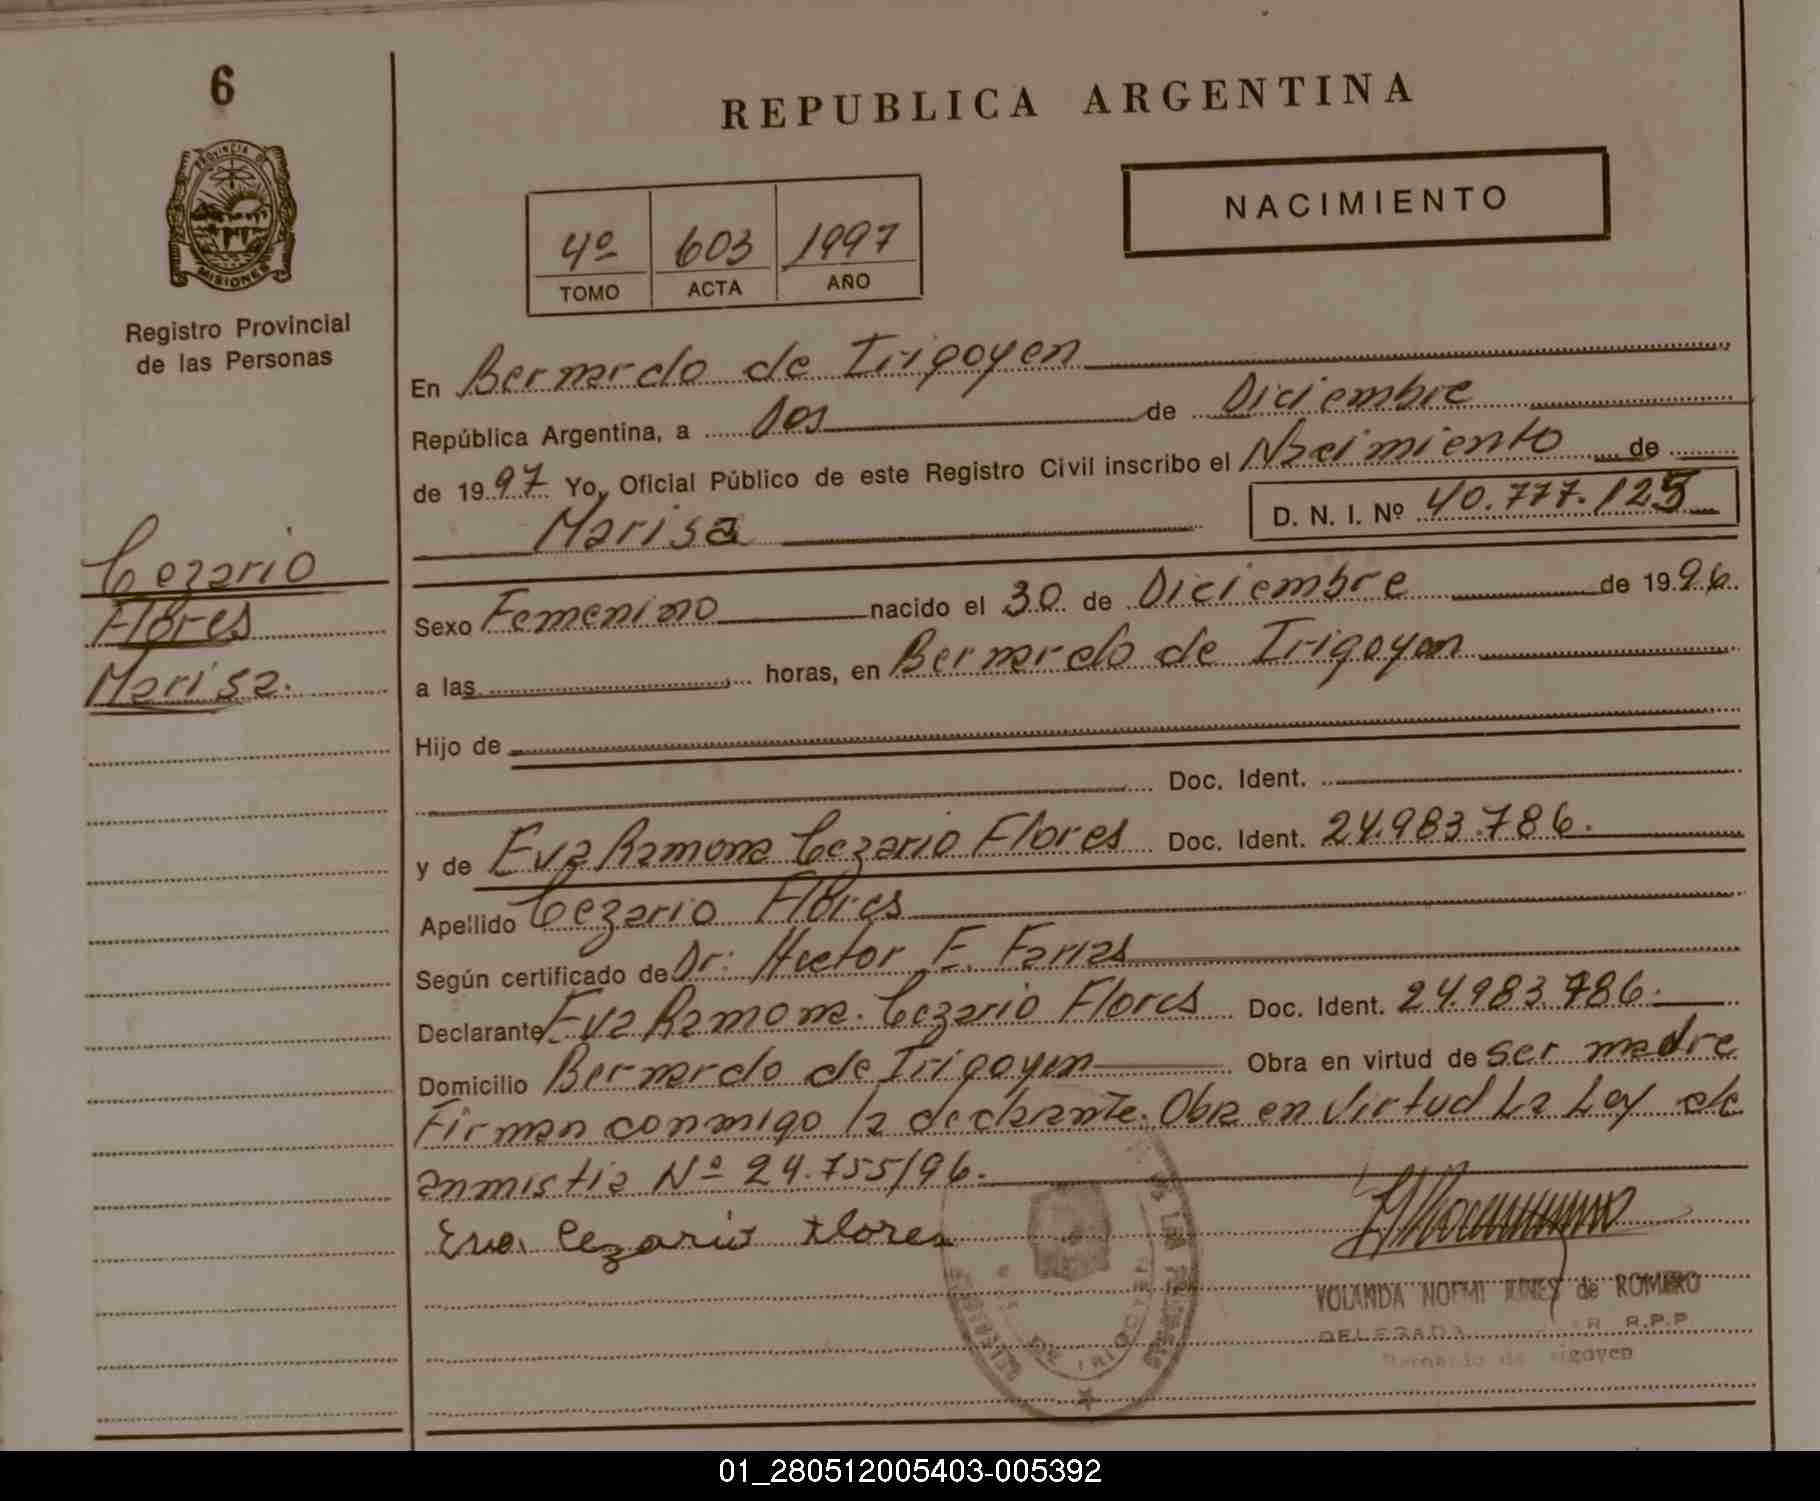 6
REPUBLICA ARGENTINA
NACIMIENTO
PROVINCIA DE
MISIONES
4º 603 1997
TOMO ACTA AÑO
Registro Provincial
de las Personas
En Bernardo de Irigoyen
República Argentina, a Dos de Diciembre
de 1997 Yo, Oficial Público de este Registro Civil inscribo el Nacimiento de
Marisa D. N. I. Nº 40.777.125
Cezario
Flores
Marisa.
Sexo Femenino nacido el 30 de Diciembre de 1996.
a las horas, en Bernardo de Irigoyen
Hijo de
Doc. Ident.
y de Eva Ramona Cezario Flores Doc. Ident. 24.983.786.
Apellido Cezario Flores
Según certificado de Dr: Hector E. Farias
Declarante Eva Ramona. Cezario Flores Doc. Ident. 24.983.786.
Domicilio Bernardo de Irigoyen Obra en virtud de ser madre
Firman conmigo la declarante. Obra en virtud La Ley de
anmistia Nº 24.755/96.
Eva. Cezario Flores
YOLANDA NOEMI de ROMERO
DELEGADA R.P.P
Bernardo de Irigoyen
DE IRIGOYEN
01_280512005403-005392